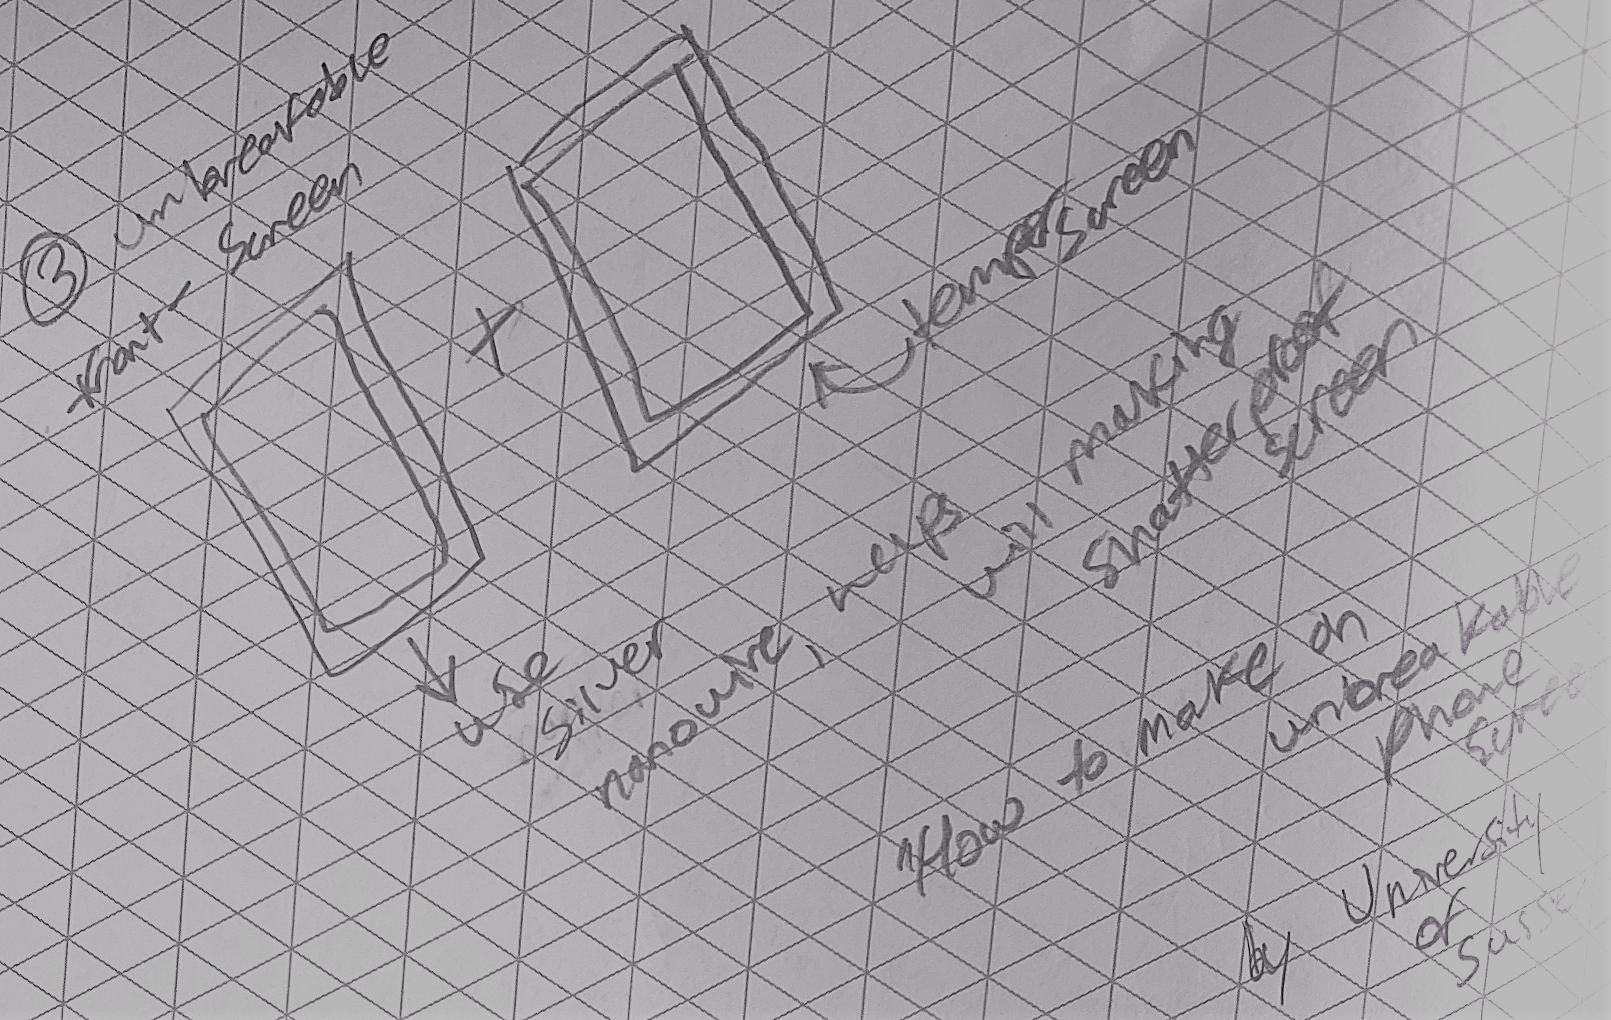 3
unbreakable
screen
front
+
temper screen
use
silver
nanowire, helps
will making
shatterproof
screen
"How to make an
unbreakable
phone
screen
by University
of
Sussex